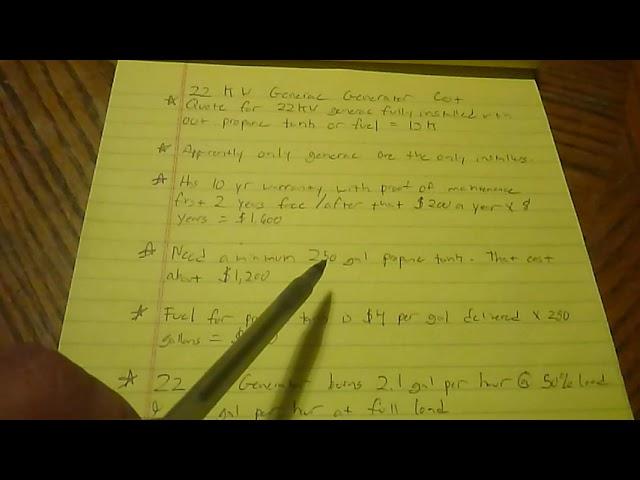 22 KV Generac Generator Cost
☆ Quote for 22KV generac fully installed with
out propane tank or fuel = 13K
☆ Apparently only generac are the only installers.
☆ Has 10 yr warranty with proof of maintenence
first 2 years free / after that $200 a year x 8
years = $1,600
☆ Need a minimum 250 gal propane tank. That cost
about $1,200
☆ Fuel for tank is $4 per gal delivered x 250
gallons = $
☆ 22 Generator burns 2.1 gal per hour @ 50% load
gal per hur at full load